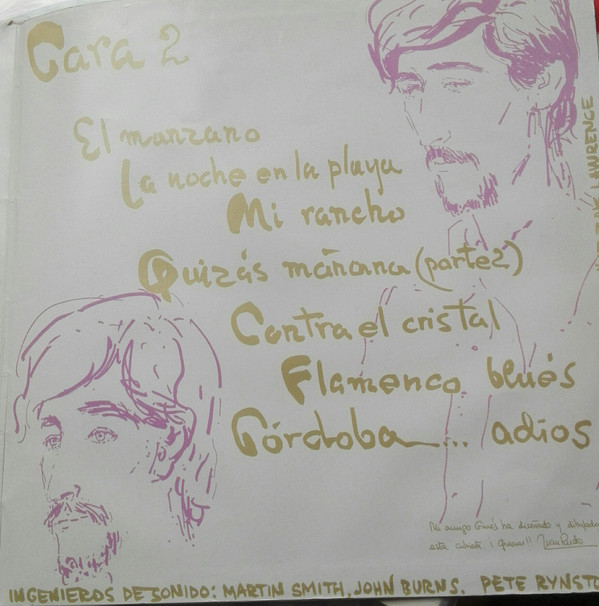 Cara 2
El manzano
La noche en la playa
Mi rancho
Quizás mañana (parte 2)
Contra el cristal
Flamenco blués
Córdoba... adios
LAWRENCE
Mi amigo Ginés ha diseñado y dibujado
esta cubierta. ¡Gracias!! Juan Pardo
INGENIEROS DE SONIDO: MARTIN SMITH, JOHN BURNS. PETE RYNSTO